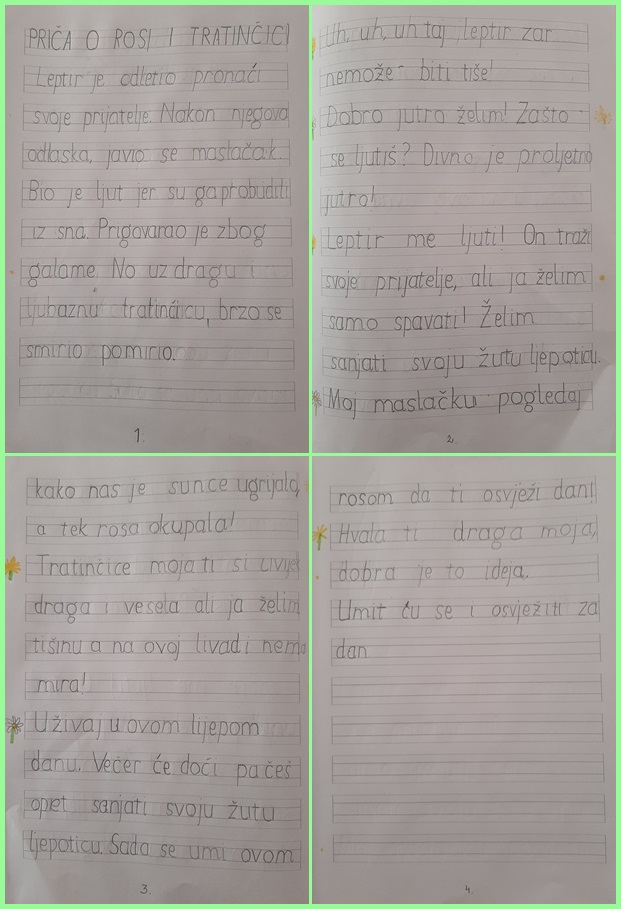 PRIČA O ROSI I TRATINČICI
Leptir je odletio pronaći
svoje prijatelje. Nakon njegova
odlaska, javio se maslačak.
Bio je ljut jer su ga probudili
iz sna. Prigovarao je zbog
galame. No uz dragu i
ljubaznu tratinčicu, brzo se
smirio pomirio.
1.
Uh, uh, uh taj leptir zar
nemože biti tiše!
Dobro jutro želim! Zašto
se ljutiš? Divno je proljetno
jutro!
Leptir me ljuti! On traži
svoje prijatelje, ali ja želim
samo spavati! Želim
sanjati svoju žutu ljepoticu.
Moj maslačku pogledaj
2.
kako nas je sunce ugrijalo,
a tek rosa okupala!
Tratinčice moja ti si uvijek
draga i vesela ali ja želim
tišinu a na ovoj livadi nema
mira!
Uživaj u ovom lijepom
danu. Večer će doći pa češ
opet sanjati svoju žutu
ljepoticu. Sada se umi ovom
3.
rosom da ti osvježi dan!
Hvala ti draga moja,
dobra je to ideja.
Umit ću se i osvježiti za
dan
4.